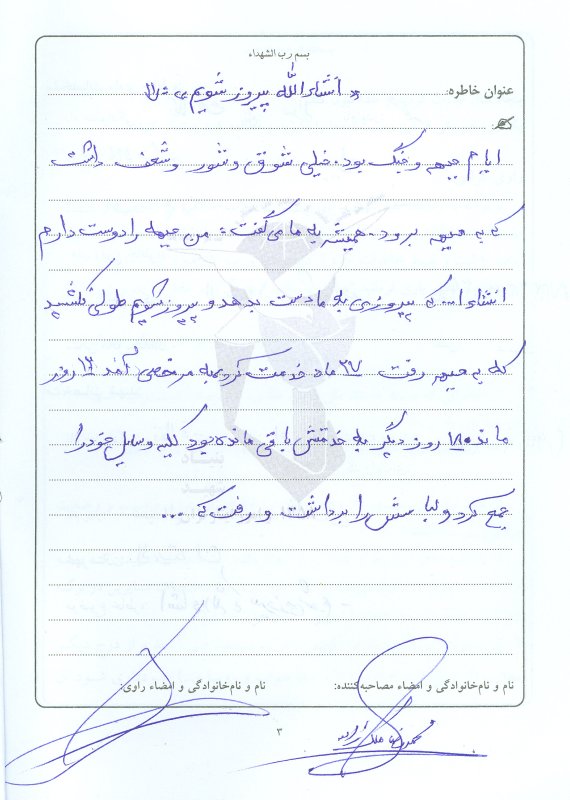 بسم رب الشهداء
عنوان خاطره: « انشاءالله پیروز شویم »
ایام جبهه و جنگ بود. خیلی شوق و شور و شعف داشت
که به جبهه برود. همیشه به ما می‌گفت: من جبهه را دوست دارم
انشاءا... که پیروزی به ما دست بدهد و پیروز شویم طولی نکشید
که به جبهه رفت ۲۷ ماه خدمت کرد به مرخصی آمد ۱۳ روز
ماند ۱۸ روز دیگر به خدمتش باقی مانده بود کلیه وسایل خود را
جمع کرد و لباسش را برداشت و رفت که ...
نام و نام‌خانوادگی و امضاء مصاحبه‌کننده: نام و نام‌خانوادگی و امضاء راوی:
۳